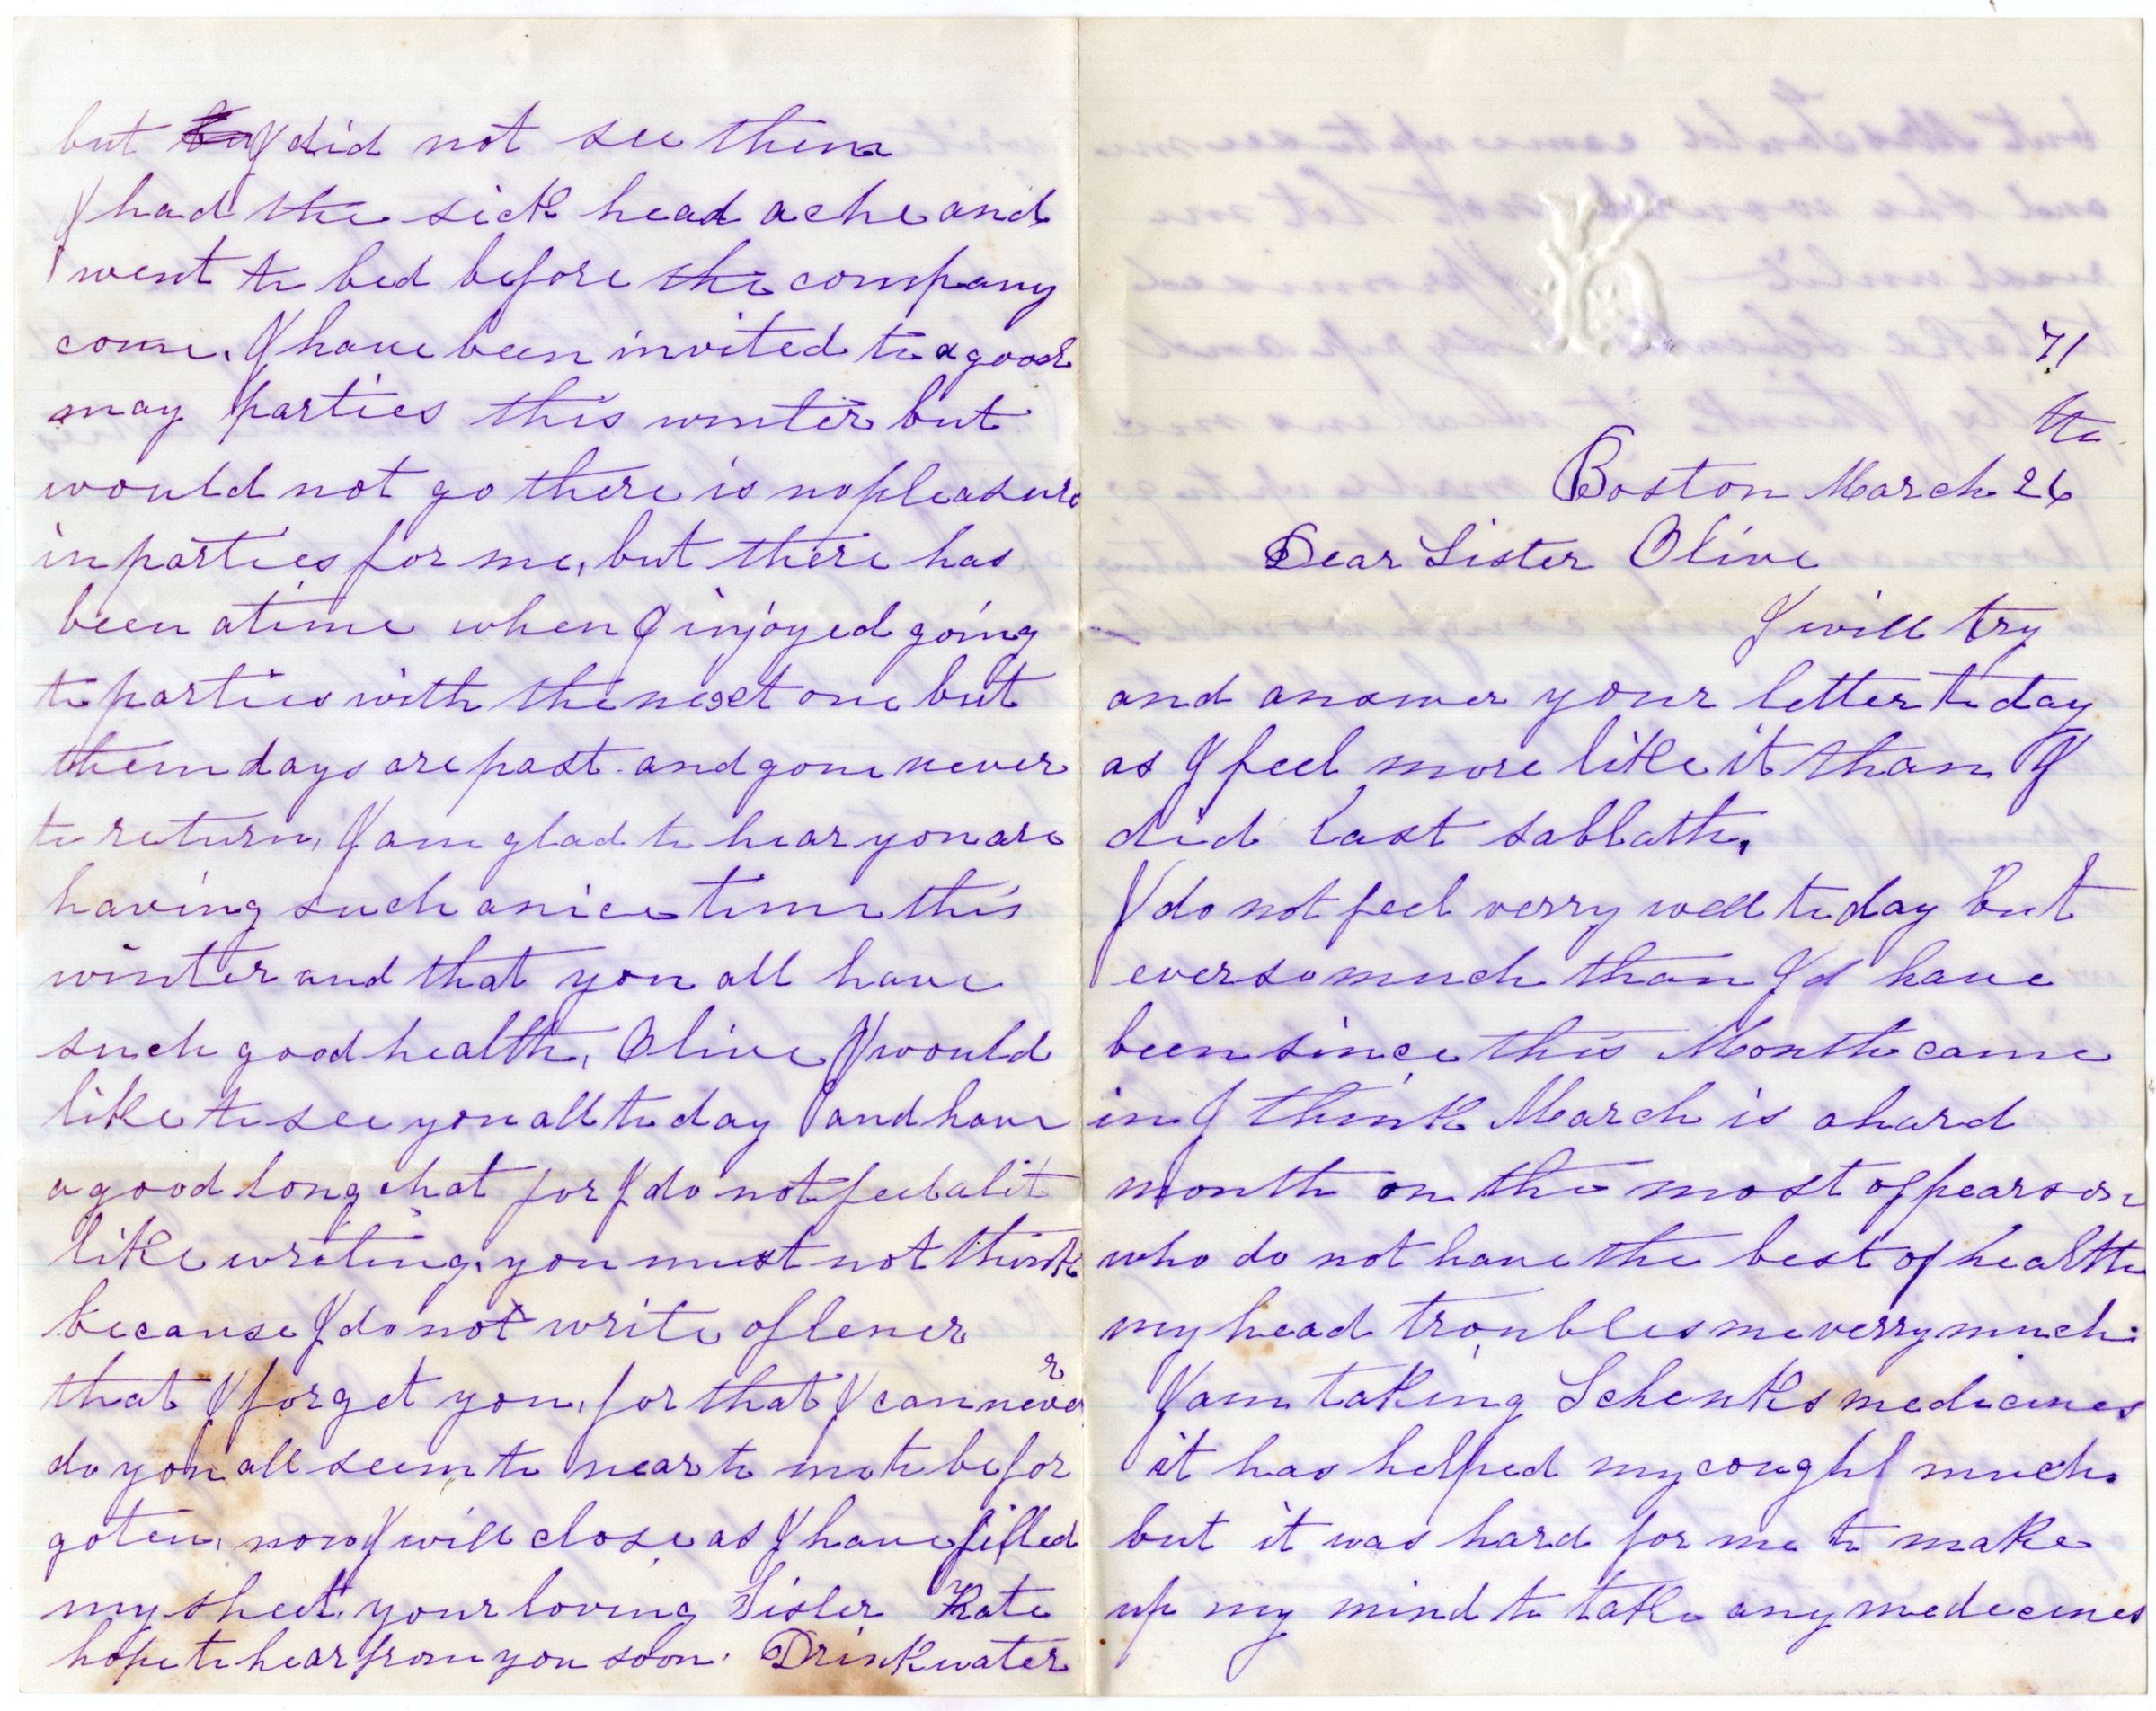 71
th
Boston March 26
Dear Sister Olive
I will try
and answer your letter to day
as I feel more like it than I
did last sabbath.
I do not feel verry well to day but
ever so much than I'd have
been since this Month came
in I think March is a hard
month on the most of pearson
who do not have the best of health
my head troubles me verry much.
I am taking Schenks medicines
it has helped my cough much.
but it was hard for me to make
up my mind to take any medecines
but I did not see them
I had the sick head ache and
went to bed before the company
come. I have been invited to a good
may parties this winter but
would not go there is no pleasure
in parties for me, but there has
been a time when I injoyed going
to parties with the next one but
them days are past and gone never
to return, I am glad to hear you are
having such a nice time this
winter and that you all have
such good health, Olive I would
like to see you all to day and have
a good long chat for I do not feel a bit
like writing. you must not think
because I do not write oftener
that I forget you, for that I can never
do you all seem to near to me to be for
goten, now I will close as I have filled
my sheet. your loving Sister Kate
hope to hear from you soon. Drinkwater